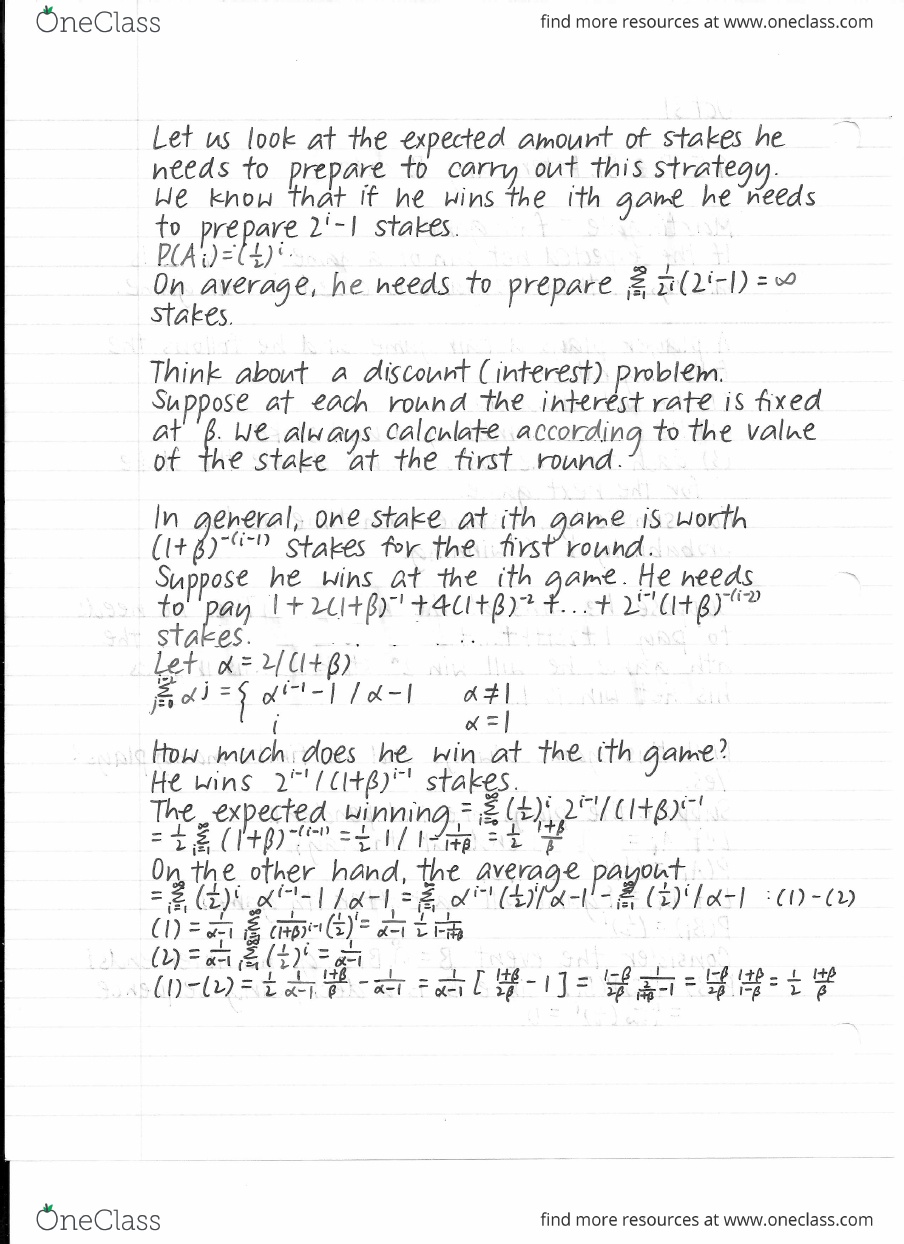 OneClass
find more resources at www.oneclass.com
Let us look at the expected amount of stakes he
needs to prepare to carry out this strategy.
We know that if he wins the ith game he needs
to prepare 2^i-1 stakes.
P(A_i)=(1/2)^i.
On average, he needs to prepare ∑_{i=1}^∞ 1/2^i (2^i-1) = ∞
stakes.
Think about a discount (interest) problem.
Suppose at each round the interest rate is fixed
at β. We always calculate according to the value
of the stake at the first round.
In general, one stake at ith game is worth
(1+β)^-(i-1) stakes for the first round.
Suppose he wins at the ith game. He needs
to pay 1+2(1+β)^-1+4(1+β)^-2+...+2^i-1(1+β)^-(i-2)
stakes.
Let α = 2/(1+β)
∑_{j=0}^{i-2} α^j = { α^i-1 - 1 / α-1 α≠1
i α=1
How much does he win at the ith game?
He wins 2^i-1/(1+β)^i-1 stakes.
The expected winning = ∑_{i=0}^∞ (1/2)^i 2^i-1/(1+β)^i-1
= 1/2 ∑_{i=1}^∞ (1+β)^-(i-1) = 1/2 1/1-1/(1+β) = 1/2 (1+β)/β
On the other hand, the average payout
= ∑_{i=1}^∞ (1/2)^i α^i-1 - 1/α-1 = ∑_{i=1}^∞ α^i-1 (1/2)^i/α-1 - ∑_{i=1}^∞ (1/2)^i/α-1 : (1)-(2)
(1) = 1/(α-1) ∑_{i=1}^∞ 1/(1+β)^i-1 (1/2)^i = 1/(α-1) 1/2 1/(1-1/(1+β))
(2) = 1/(α-1) ∑_{i=1}^∞ (1/2)^i = 1/(α-1)
(1)-(2) = 1/2 1/(α-1) (1+β)/β - 1/(α-1) = 1/(α-1) [ (1+β)/2β - 1 ] = (1-β)/2β 1/(2/(1+β) - 1) = (1-β)/2β (1+β)/(1-β) = 1/2 (1+β)/β
OneClass
find more resources at www.oneclass.com